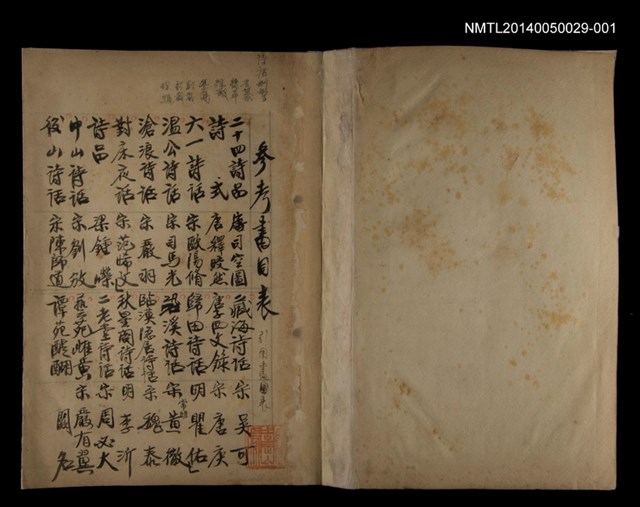 NMTL20140050029-001
參考書目表
二十四詩品 唐司空圖 藏海詩話 宋吳可
詩式 唐釋皎然 唐子西文錄 宋唐庚
六一詩話 宋歐陽脩 歸田詩話 明瞿佑
溫公詩話 宋司馬光 䂬溪詩話 宋黃徹
滄浪詩話 宋嚴羽 臨漢隱居詩話 宋魏泰
對床夜話 宋范晞文 秋星閣詩話 明李沂
詩品 梁鍾嶸 二老堂詩話 宋周必大
中山詩話 宋劉攽 藝苑雌黃 宋嚴有翼
後山詩話 宋陳師道 譚苑醍醐 闕名